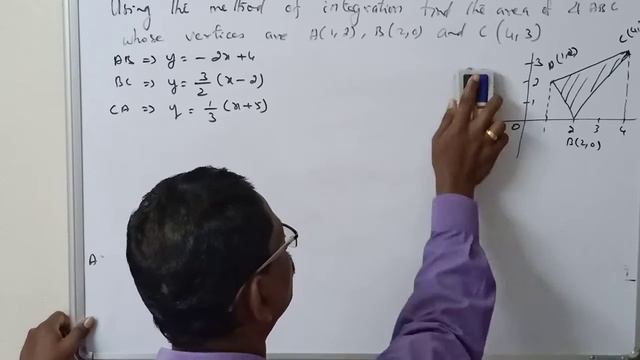 Using the method of integration find the area of Δ ABC
whose vertices are A(1,2), B(2,0) and C(4,3)
AB ⇒ y = -2x+4
BC ⇒ y = 3/2 (x-2)
CA ⇒ y = 1/3 (x+5)
C(4,
3 A(1,2)
2
1
O 1 2 3 4
B(2,0)
A